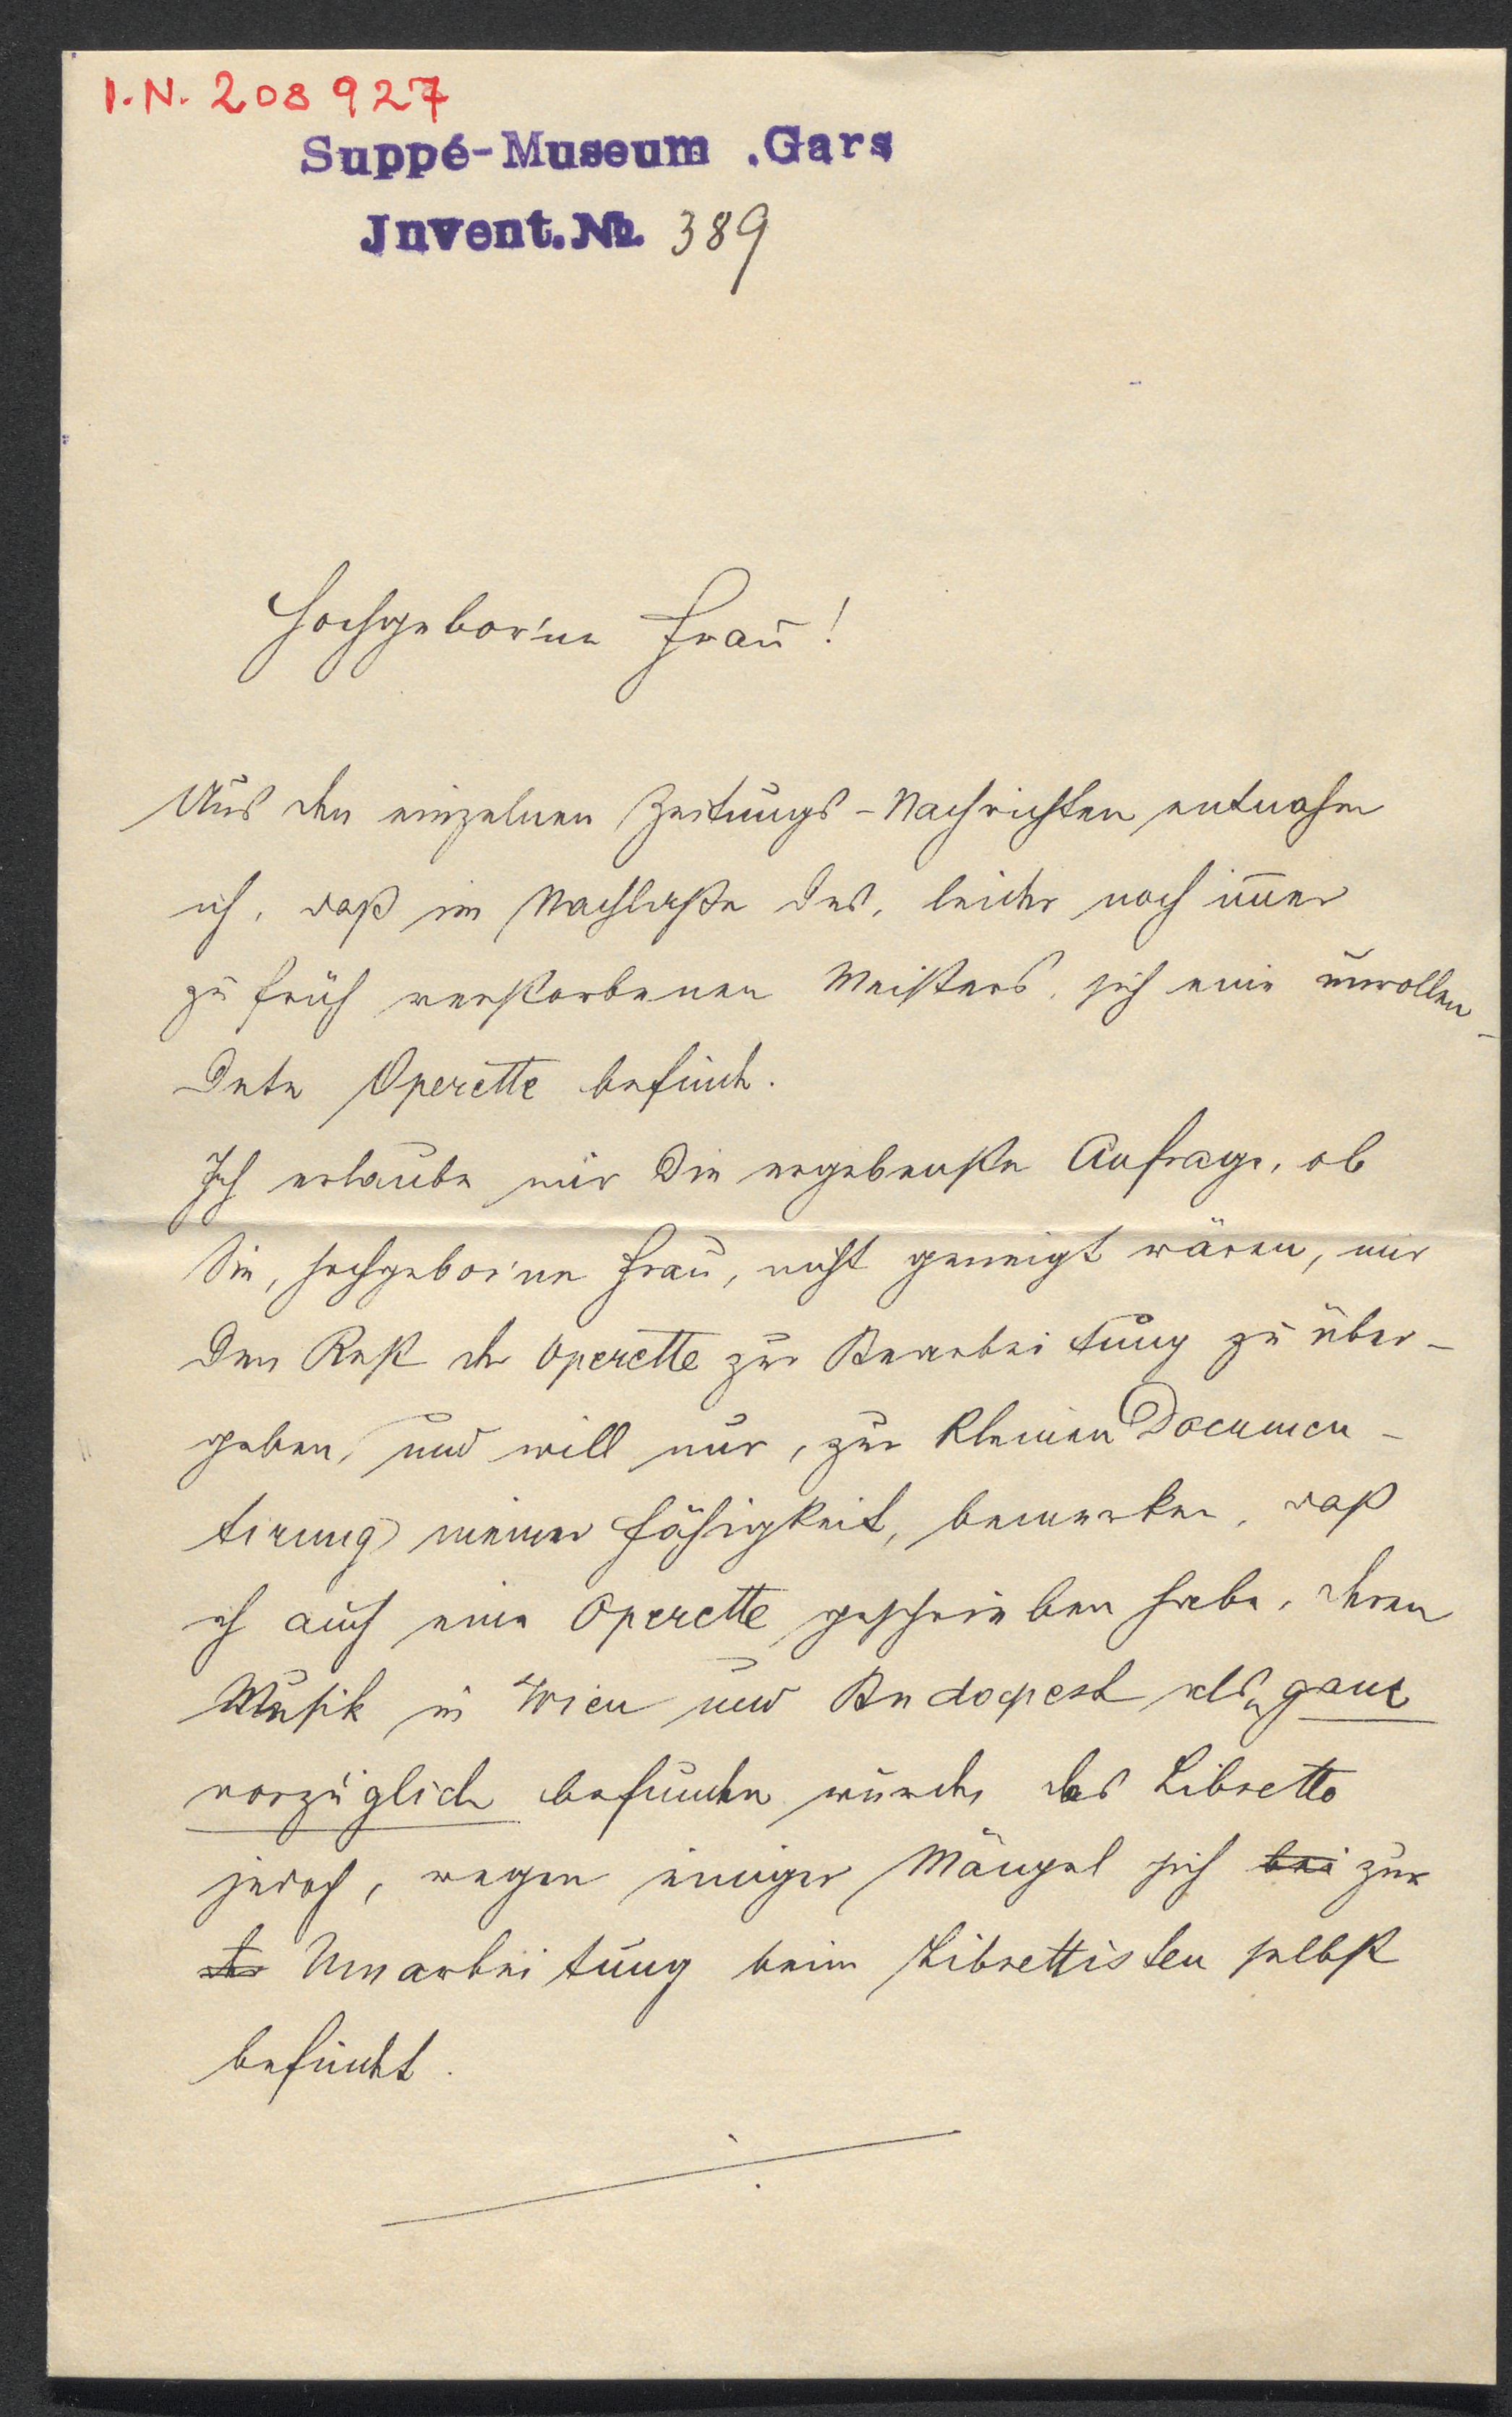 I.N. 208927
Suppé-Museum .Gars
Jnvent.No. 389
Hochgebor'ne Frau!
Aus den einzelnen Zeitungs-Nachrichten entnahm
ich, daß im Nachlaße des, leider noch im̅er
zu früh verstorbenen Meisters, sich eine unvollen-
dete Operette befinde.
Ich erlaube mir die ergebenste Anfrage, ob
Sie, hochgebor'ne Frau, nicht geneigt wären, mir
den Rest der Operette zur Bearbeitung zu über-
geben, und will nur, zur kleinen Documen-
tirung meiner Fähigkeit, bemerken, daß
ich auch eine Operette geschrieben habe, deren
Musik in Wien und Budapest als ganz
vorzüglich befunden wurde, das Libretto
jedoch, wegen einiger Mängel sich bei zur
der Umarbeitung beim Librettisten selbst
befindet.